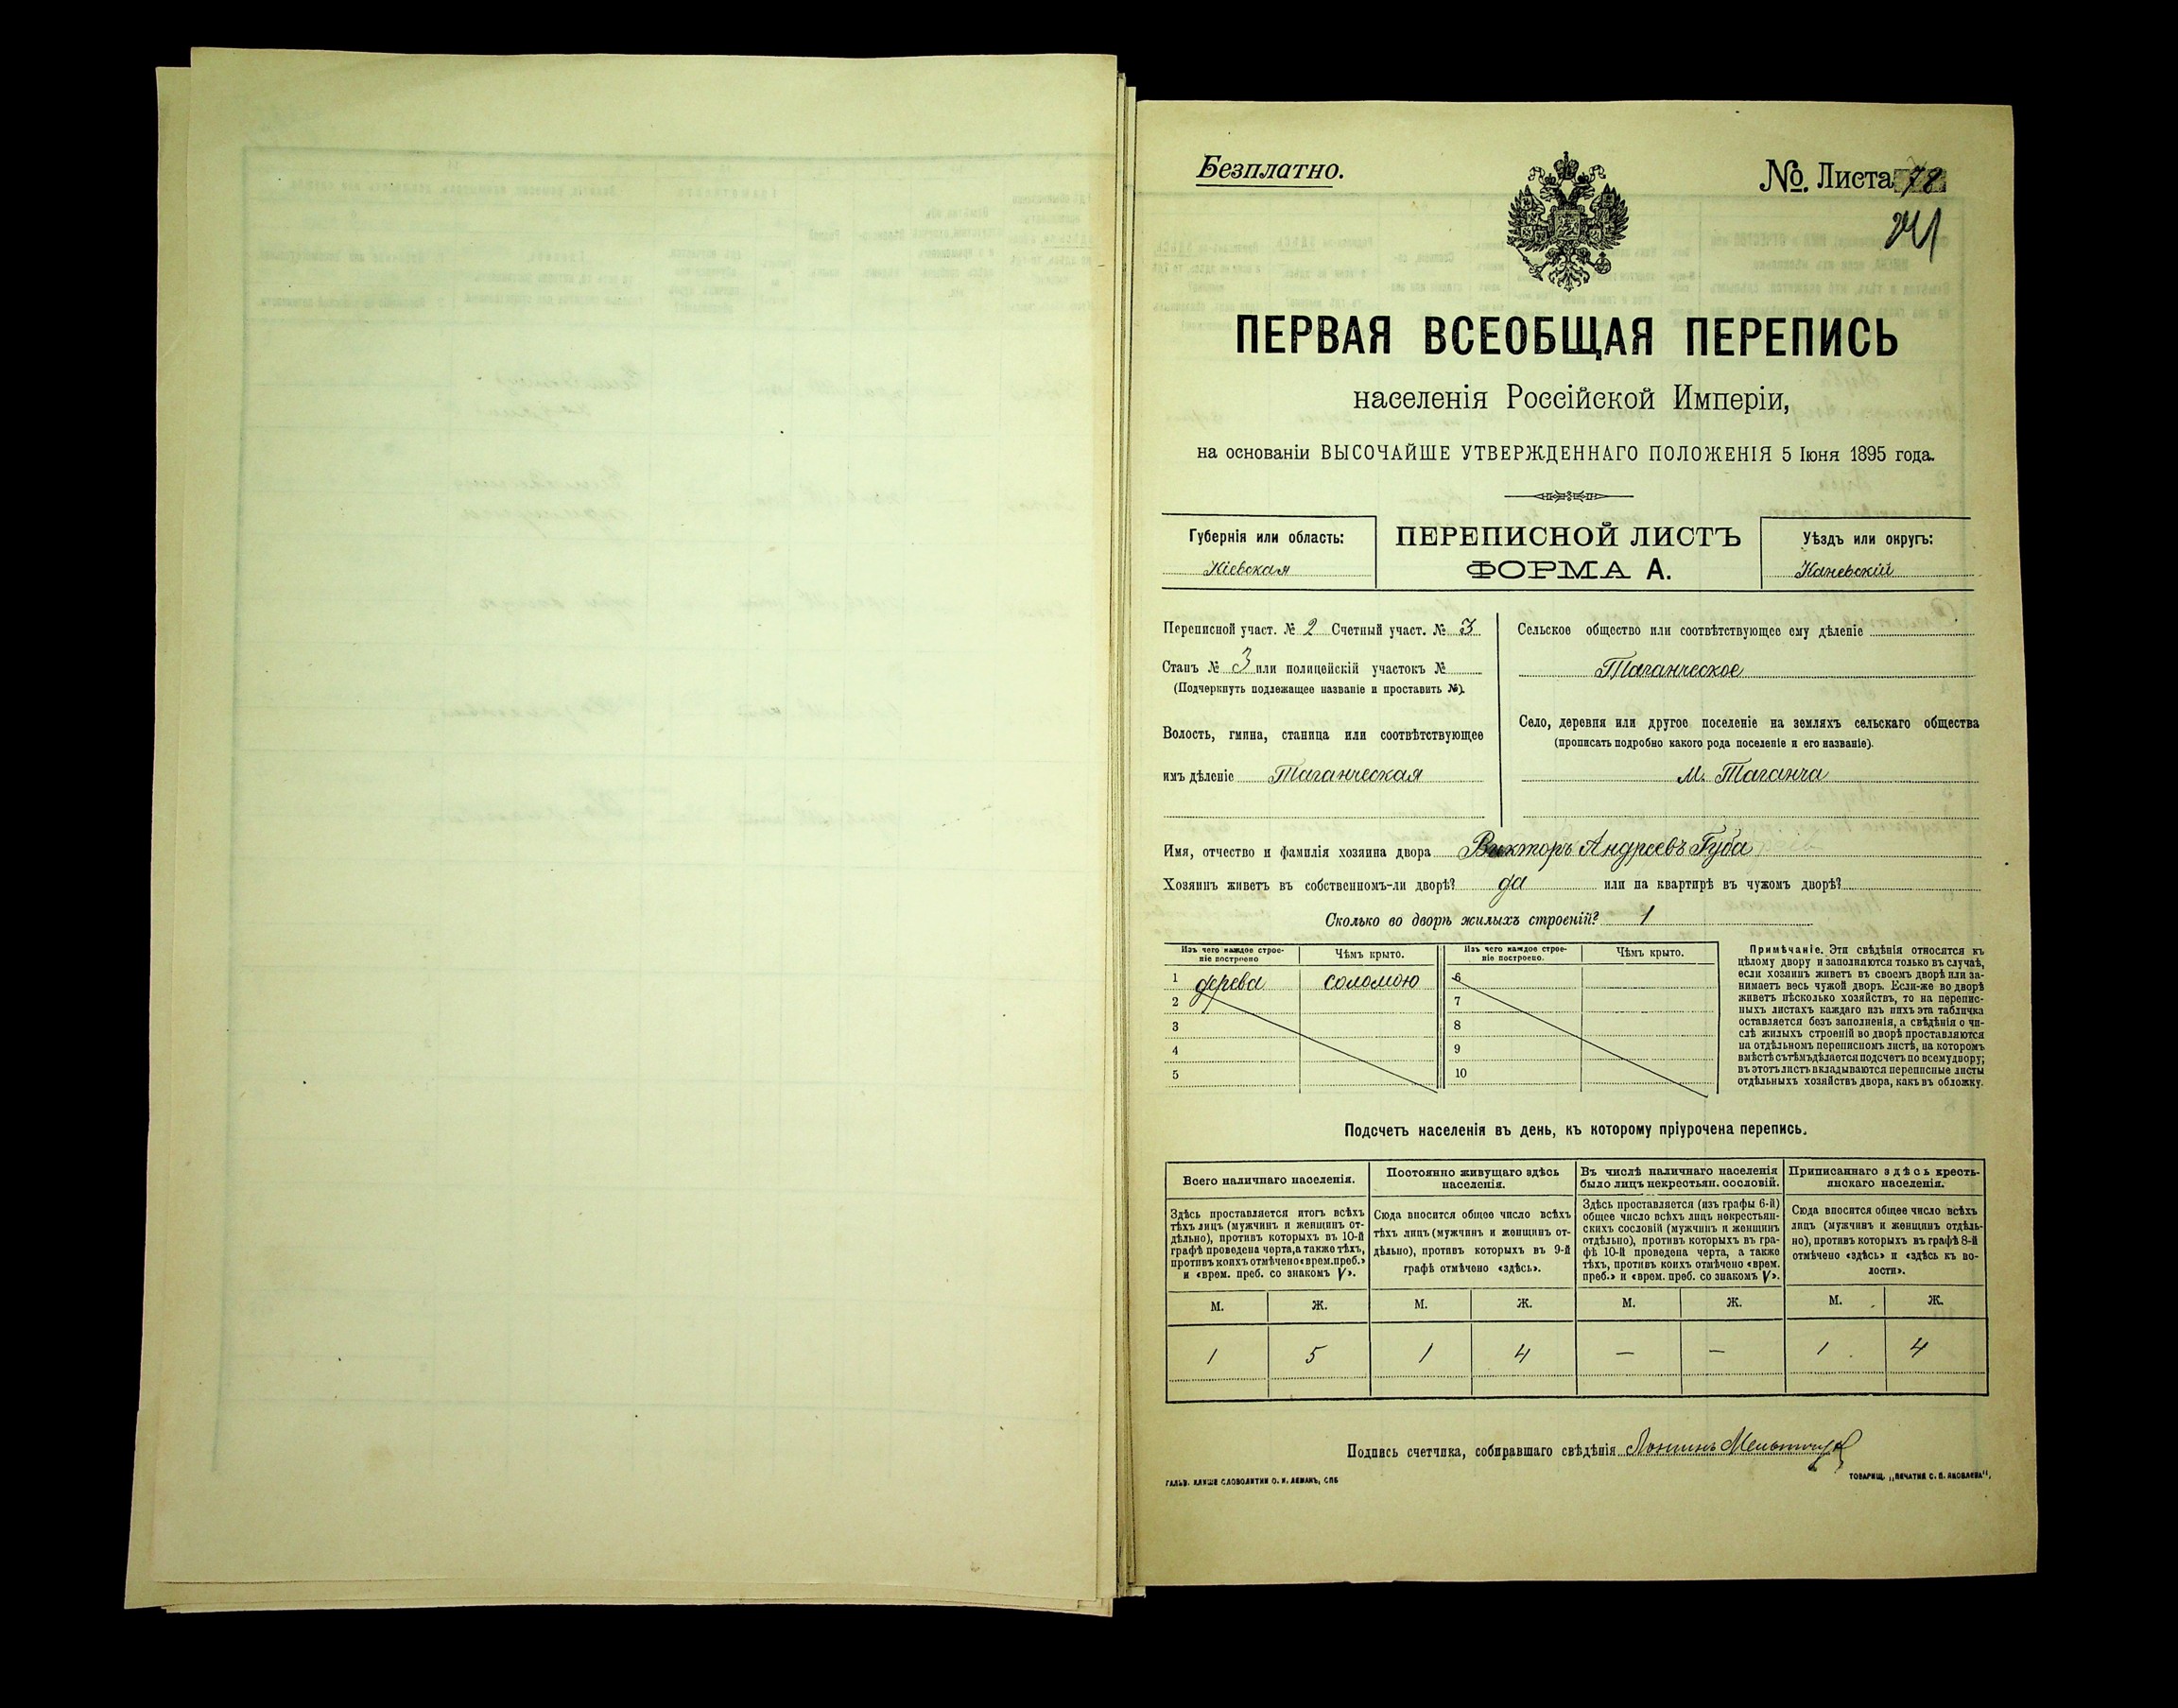 Безплатно.
№. Листа 78
241
ПЕРВАЯ ВСЕОБЩАЯ ПЕРЕПИСЬ
населенія Россійской Имперіи,
на основаніи ВЫСОЧАЙШЕ УТВЕРЖДЕННАГО ПОЛОЖЕНІЯ 5 Іюня 1895 года.
Губернія или область:
Кіевская
ПЕРЕПИСНОЙ ЛИСТЪ
ФОРМА А.
Уѣздъ или округъ:
Каневскій
Переписной участ. № 2 Счетный участ. № 3
Станъ № 3 или полицейскій участокъ №
(Подчеркнуть подлежащее названіе и проставить №).
Волость, гмина, станица или соотвѣтствующее
имъ дѣленіе Таганческая
Сельское общество или соотвѣтствующее ему дѣленіе
Таганческое
Село, деревня или другое поселеніе на земляхъ сельскаго общества
(прописать подробно какого рода поселеніе и его названіе).
М. Таганча
Имя, отчество и фамилія хозяина двора Викторъ Андреевъ Губа
Хозяинъ живетъ въ собственномъ-ли дворѣ? да или на квартирѣ въ чужомъ дворѣ?
Сколько во дворѣ жилыхъ строеній? 1
Изъ чего каждое строе-
ніе построено
Чѣмъ крыто.
Изъ чего каждое строе-
ніе построено.
Чѣмъ крыто.
1 дерева соломою 6
2 7
3 8
4 9
5 10
Примѣчаніе. Эти свѣдѣнія относятся къ
цѣлому двору и заполняются только въ случаѣ,
если хозяинъ живетъ въ своемъ дворѣ или за-
нимаетъ весь чужой дворъ. Если-же во дворѣ
живетъ нѣсколько хозяйствъ, то на перепис-
ныхъ листахъ каждаго изъ нихъ эта табличка
оставляется безъ заполненія, а свѣдѣнія о чи-
слѣ жилыхъ строеній во дворѣ проставляются
на отдѣльномъ переписномъ листѣ, на которомъ
вмѣстѣ съ тѣмъ дѣлается подсчетъ по всему двору;
въ этотъ листъ вкладываются переписные листы
отдѣльныхъ хозяйствъ двора, какъ въ обложку.
Подсчетъ населенія въ день, къ которому пріурочена перепись.
Всего наличнаго населенія.
Здѣсь проставляется итогъ всѣхъ
тѣхъ лицъ (мужчинъ и женщинъ от-
дѣльно), противъ которыхъ въ 10-й
графѣ проведена черта, а также тѣхъ,
противъ коихъ отмѣчено «врем. преб.»
и «врем. преб. со знакомъ V».
Постоянно живущаго здѣсь
населенія.
Сюда вносится общее число всѣхъ
тѣхъ лицъ (мужчинъ и женщинъ от-
дѣльно), противъ которыхъ въ 9-й
графѣ отмѣчено «здѣсь».
Въ числѣ наличнаго населенія
было лицъ некрестьян. сословій.
Здѣсь проставляется (изъ графы 6-й)
общее число всѣхъ лицъ некрестьян-
скихъ сословій (мужчинъ и женщинъ
отдѣльно), противъ которыхъ въ гра-
фѣ 10-й проведена черта, а также
тѣхъ, противъ коихъ отмѣчено «врем.
преб.» и «врем. преб. со знакомъ V».
Приписаннаго здѣсь кресть-
янскаго населенія.
Сюда вносится общее число всѣхъ
лицъ (мужчинъ и женщинъ отдѣль-
но), противъ которыхъ въ графѣ 8-й
отмѣчено «здѣсь» и «здѣсь къ во-
лости».
М. Ж. М. Ж. М. Ж. М. Ж.
1 5 1 4 — — 1 4
Подпись счетчика, собиравшаго свѣдѣнія
ГАЛЬВ. КЛИШЕ СЛОВОЛИТНИ О. И. ЛЕМАНЪ, СПБ
ТОВАРИЩ. „ПЕЧАТНЯ С. П. ЯКОВЛЕВА“,